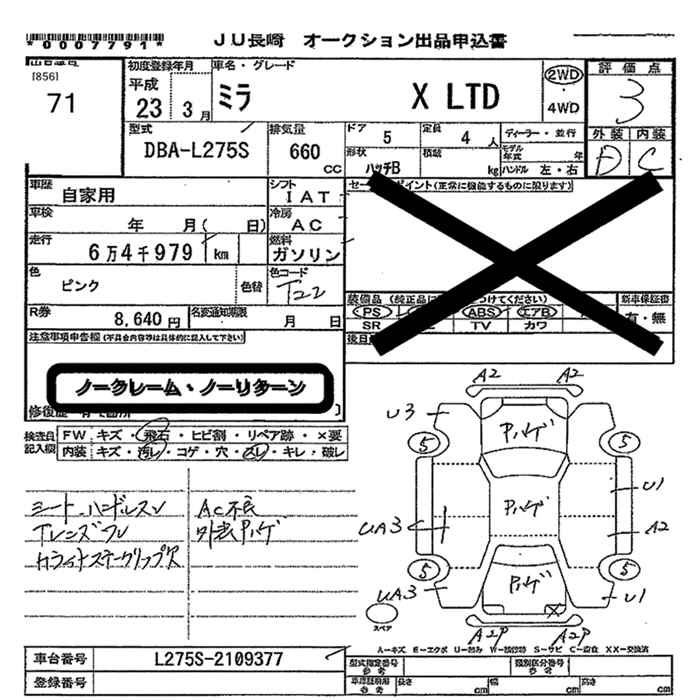 *0007791* JU長崎 オークション出品申込書
[856]
71
初度登録年月 車名・グレード 2WD 評価点
平成
23 3月 ミラ X LTD ・ 4WD 3
型式 排気量 ドア 5 定員 4人 ディーラー・並行 外装 内装
DBA-L275S 660 CC 形状 ハッチB 積載 kg モデル年式 年 ハンドル 左・右 D C
車歴 自家用 シフト IAT
車検 年 月( 日) 冷房 AC
走行 6万4千979 km 燃料 ガソリン
色 ピンク 色替 色コード T22
R券 8,640円 名変通知期限 月 日
ポイント(正常に機能するものに限ります)
装備品 (純正品に つけてください) 新車保証書
PS ABS エアB 有・無
SR TV カワ
注意事項申告欄(不具合内容等は具体的に記入して下さい)
ノークレーム・ノーリターン
検査員記入欄 FW キズ・飛石・ヒビ割・リペア跡・×要
内装 キズ・汚レ・コゲ・穴・スレ・キレ・破レ
シート、ハンドルスレ AC不良
外装Pハゲ
A2 A2
U3 Pハゲ
5 5
Pハゲ U1
UA3 C A2
5 5
UA3 Pハゲ U1
スペア
A2P A2P
A-キズ E-エクボ U-凹み W-補修跡 S-サビ C-腐食 XX-交換済
車台番号 L275S-2109377
登録番号
型式指定番号 参考 類別区分番号 参考
長さ cm 幅 cm 高さ cm